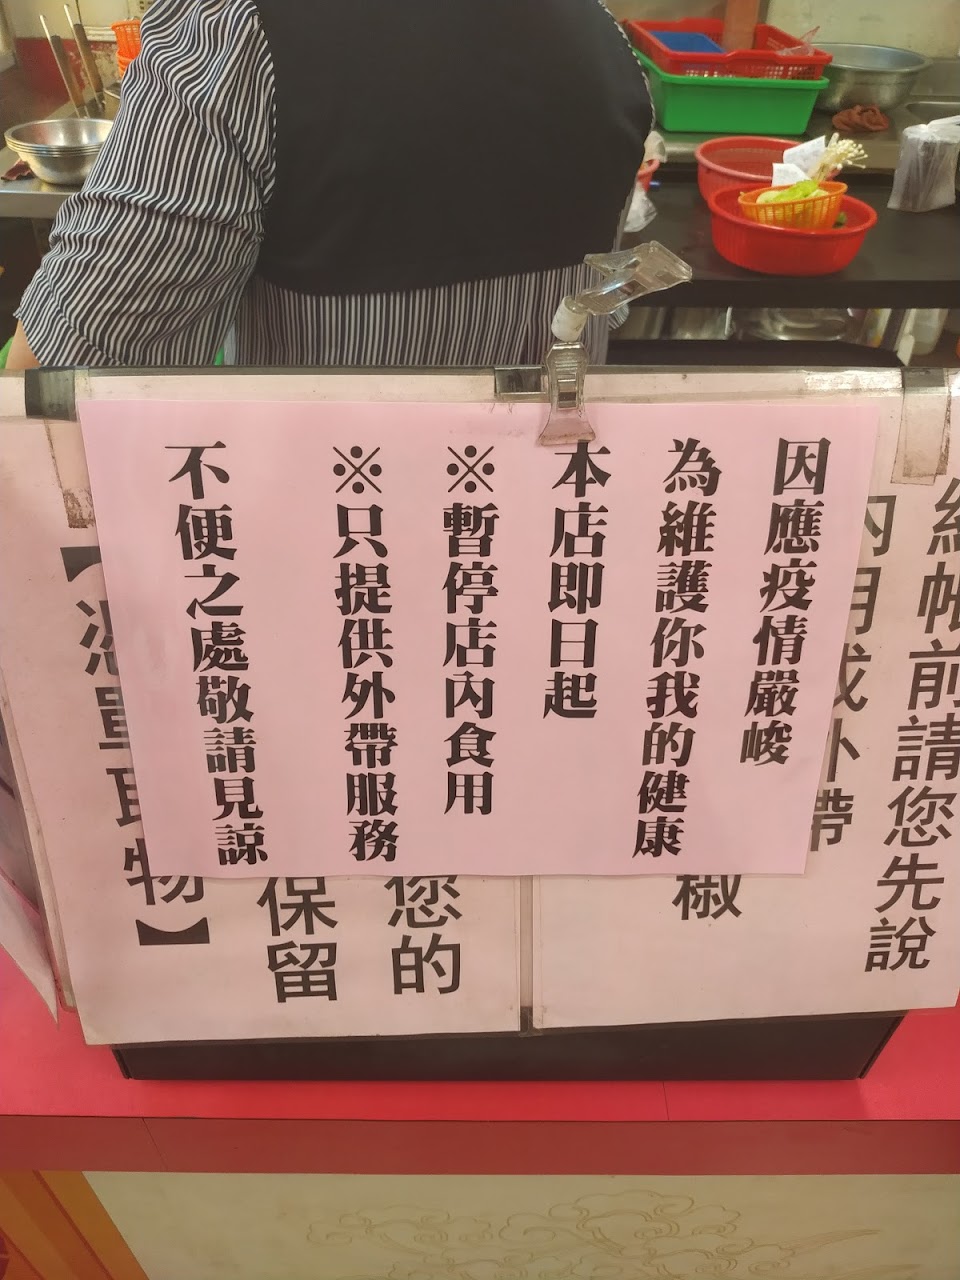 因應疫情嚴峻
為維護你我的健康
本店即日起
※暫停店內食用
※只提供外帶服務
不便之處敬請見諒
結帳前請您先說
內用或外帶
椒
您的
保留
【憑單取物】